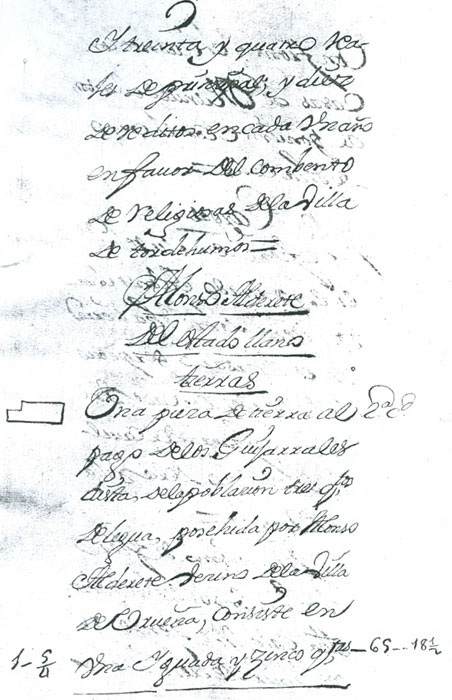 Y treinta y quatro Rea-
les de principal; y diez
de reditos en cada Un año
en favor del combento
de religiosas de la Villa
de tordehumos =
Alonso Alderete
del estado llano
tierras
Una pieza de tierra al 2ª cd
pago de los Guijarrales
dista, de la poblacion tres qtos
de legua, posehida por Alonso
Alderete vecino de la Villa
de Urueña, consiste en
1 - 5/4 Una Yguada y zinco qtas - 65 - 18 1/2